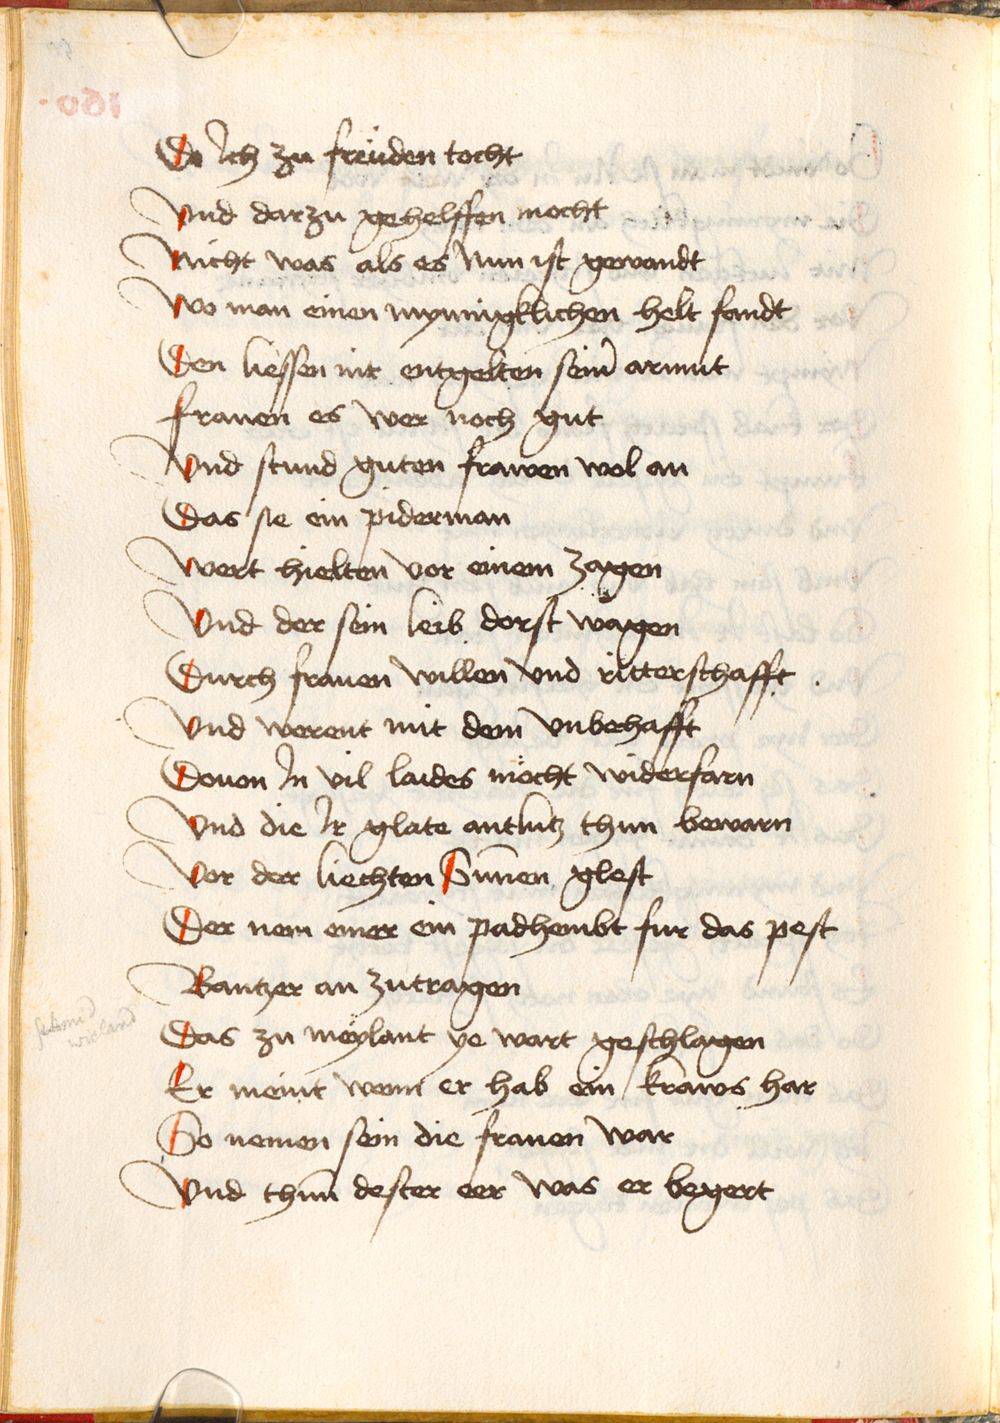 Do Ich zu freuden tocht
Vnd darzu gehelffen mocht
Nicht was als es Nun ist gewandt
Wo man einen mynnigklichen helt fandt
Den liessen nit entgelten sein armut
frauen es wer noch gut
Vnd stund guten frawen wol an
Das sie ein piderman
Wert hielten vor einem zagen
Vnd der sein leib dorst wagen
Durch frauen willen vnd ritterschafft
Vnd werent mit dem vnbehafft
Douon In vil laides möcht widerfarn
Vnd die Ir glate antlutz thun bewarn
Vor der liechten Sunnen glest
Der nem einer ein padhembt fur das pest
Bantzer an zutragen
Das zu meylant ye wart geschlagen
Er meint wenn er hab ein kraws har
So nemen sein die frauen war
Vnd thun dester eer was er begert